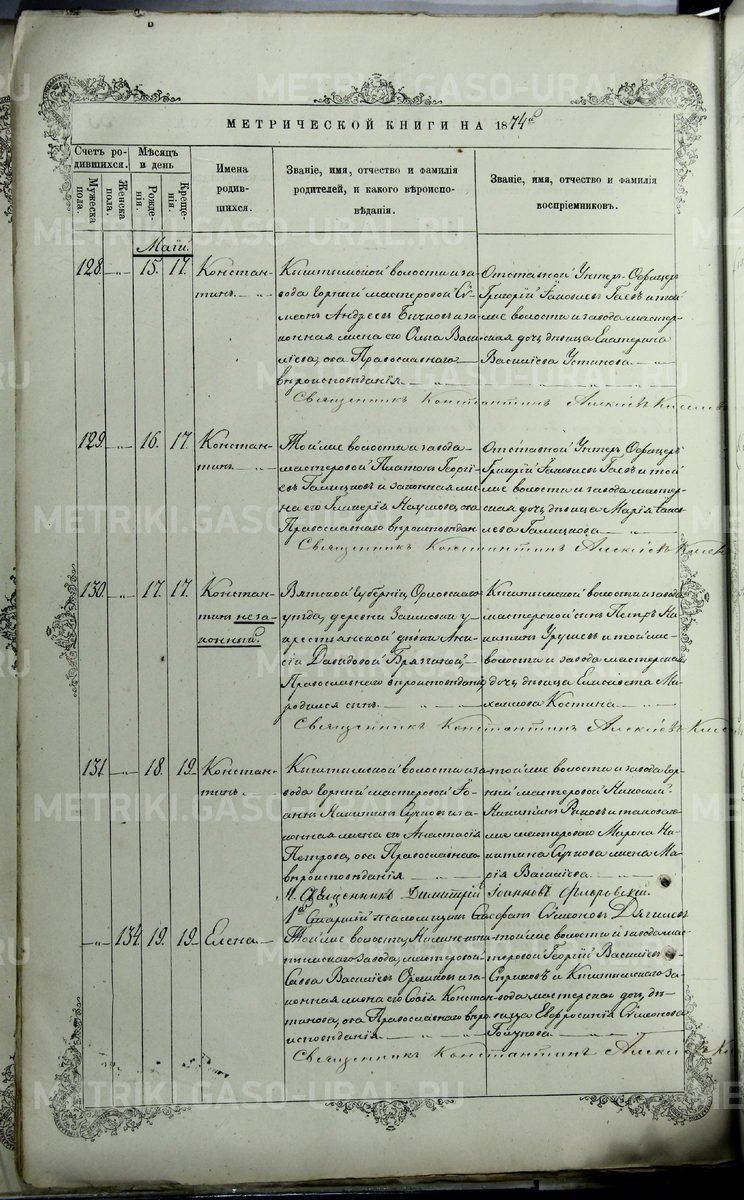 МЕТРИЧЕСКОЙ КНИГИ НА 1874й
Счетъ родившихся.
Мужеска пола.
Женска пола.
Мѣсяцъ и день
Рожденія.
Крещенія.
Имена родившихся.
Званіе, имя, отчество и фамилія родителей, и какого вѣроисповѣданія.
Званіе, имя, отчество и фамилія воспріемниковъ.
Маій.
128. 15. 17.
Констан-
тинъ.
Кыштымской волости и за-
вода Горний мастеровой Си-
меонъ Андреевъ и за-
конная жена его Олга Васи-
лiева, оба Православнаго
вѣроисповѣданія
Отставной Унтеръ-Офицеръ
Григорій Яковлевъ Гаевъ и той
же волости и завода мастер-
ская дочь дѣвица Екатерина
Василіева Устинова
Священникъ Константинъ Алексіевъ
129. 16. 17.
Констан-
тинъ.
Той же волости и завода
мастеровой Платонъ Георгі-
евъ Галицковъ и законная же-
на его Гликерія Наумова, оба
Православнаго вѣроисповѣдан
Отставной Унтеръ Офицеръ
Григорій Яковлевъ Гаевъ и той
же волости и завода мастер-
ская дочь дѣвица Марія Яков-
лева Галицкова
Священникъ Константинъ Алексіевъ
130. 17. 17.
Констан-
тинъ неза-
конный.
Вятской Губерніи, Орловскаго
уѣзда, деревни у
крестьянской дѣвки Ани-
сіи Давидовой
Православнаго вѣроисповѣданія,
родился сынъ
Кыштымской волости и завода
мастерской сынъ Петръ Ни-
китинъ и той же
волости и завода мастерская
дочь дѣвица Елисавета Ми-
хаилова Костина
Священникъ Константинъ Алексіевъ
131. 18. 19.
Констан-
тинъ.
Кыштымской волости и за-
вода Горний мастеровой Іо-
аннъ Никитинъ Сучковъ и за-
конная жена его Анастасія
Петрова, оба Православнаго
вѣроисповѣданія
той же волости и завода Гор-
ний мастеровой Николай
Никитинъ и таковаго
же мастероваго Мирона Ни-
китина Сучкова жена Ма-
рія Василіева
Священникъ Димитрій Іоанновъ
Старшій псаломщикъ Симеоновъ Дягилевъ
134. 19. 19.
Елена
Той же волости, Нижне-Кы-
штымскаго завода, мастеровой
Савва Василіевъ Орешковъ и за-
конная жена его Софія Констан-
тинова, оба Православнаго вѣро
исповѣданія
той же волости и завода мас-
теровой Георгій Василіевъ
и Кыштымскаго За-
вода, мастерская дочь, дѣ-
вица Евфросинія Симеонова
Священникъ Константинъ Алексіевъ
METRIKI.GASO-URAL.RU